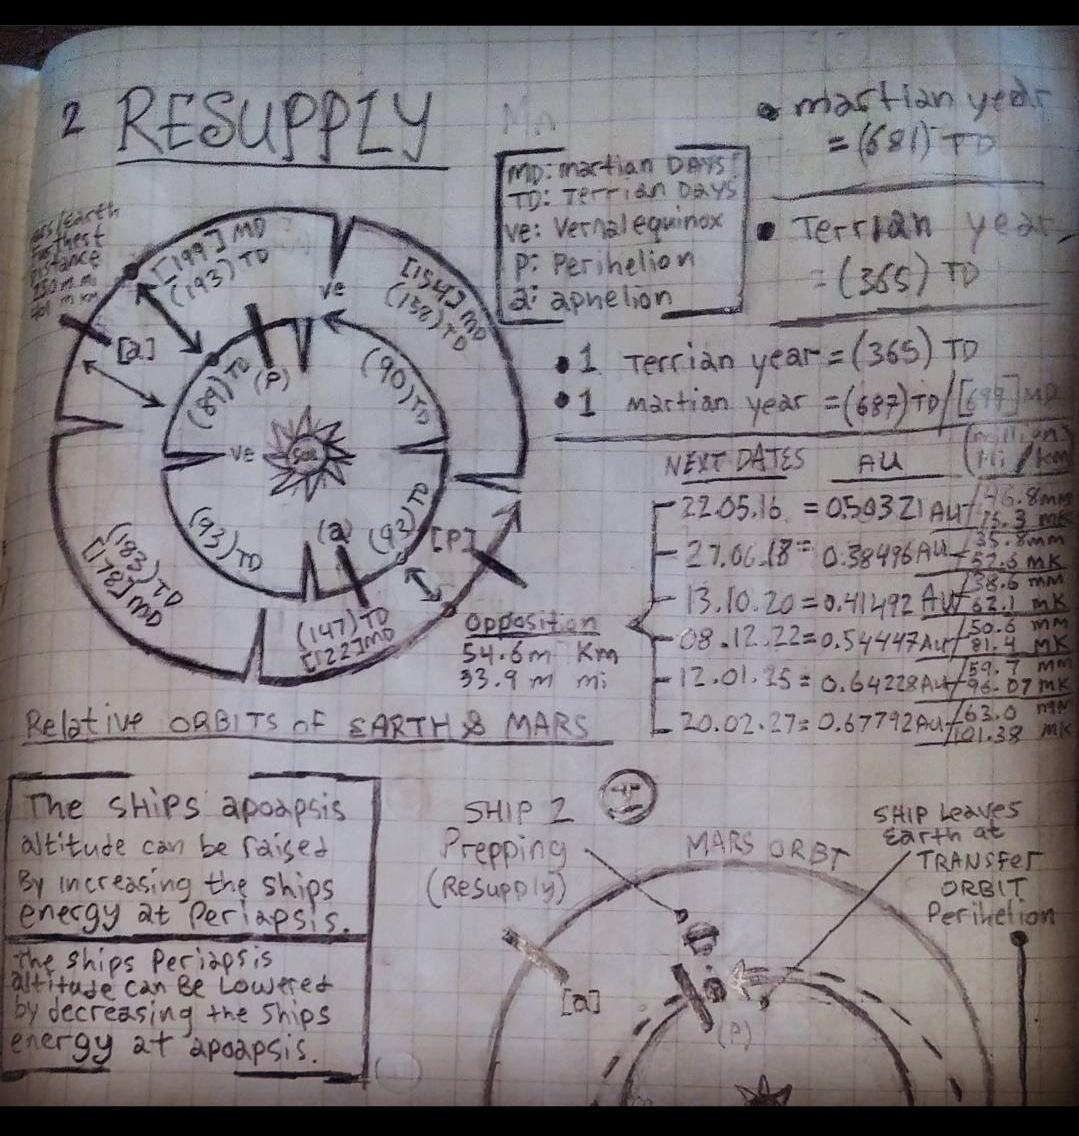 2 RESUPPLY
• martian year
= (681) TD
• Terrian year
= (365) TD
MD: martian DAYS
TD: Terrian DAYS
ve: Vernal equinox
P: Perihelion
a: aphelion
• 1 Terrian year = (365) TD
• 1 martian year = (687) TD / [699] MD
/Earth
distance
[199] MD
(193) TD
[154] MD
(158) TD
ve
[a]
(89) TD
(P)
(90) TD
ve
SOL
(93) TD
(a)
(92) TD
[P]
(183) TD
[178] MD
(147) TD
[122] MD
Opposition
54.6m Km
33.9 m mi
Relative ORBITS of EARTH & MARS
NEXT DATES AU (million) Mi / km
22.05.16 = 0.50321 AU / 46.8mm
75.3 mk
27.06.18 = 0.38496 AU / 35.8mm
57.6 mK
13.10.20 = 0.41492 AU / 38.6 mm
62.1 mK
08.12.22 = 0.54447 AU / 50.6 mm
81.4 mK
12.01.25 = 0.64228 AU / 59.7 mm
96.07 mK
20.02.27 = 0.67792 AU / 63.0 mm
101.38 mK
The SHIPS apoapsis
altitude can be raised
By increasing the ships
energy at Periapsis.
the ships Periapsis
altitude can Be Lowered
by decreasing the ships
energy at apoapsis.
SHIP 2
Prepping
(Resupply)
MARS ORBT
SHIP LeaVES
Earth at
TRANSfer
ORBIT
Perihelion
[a]
(P)